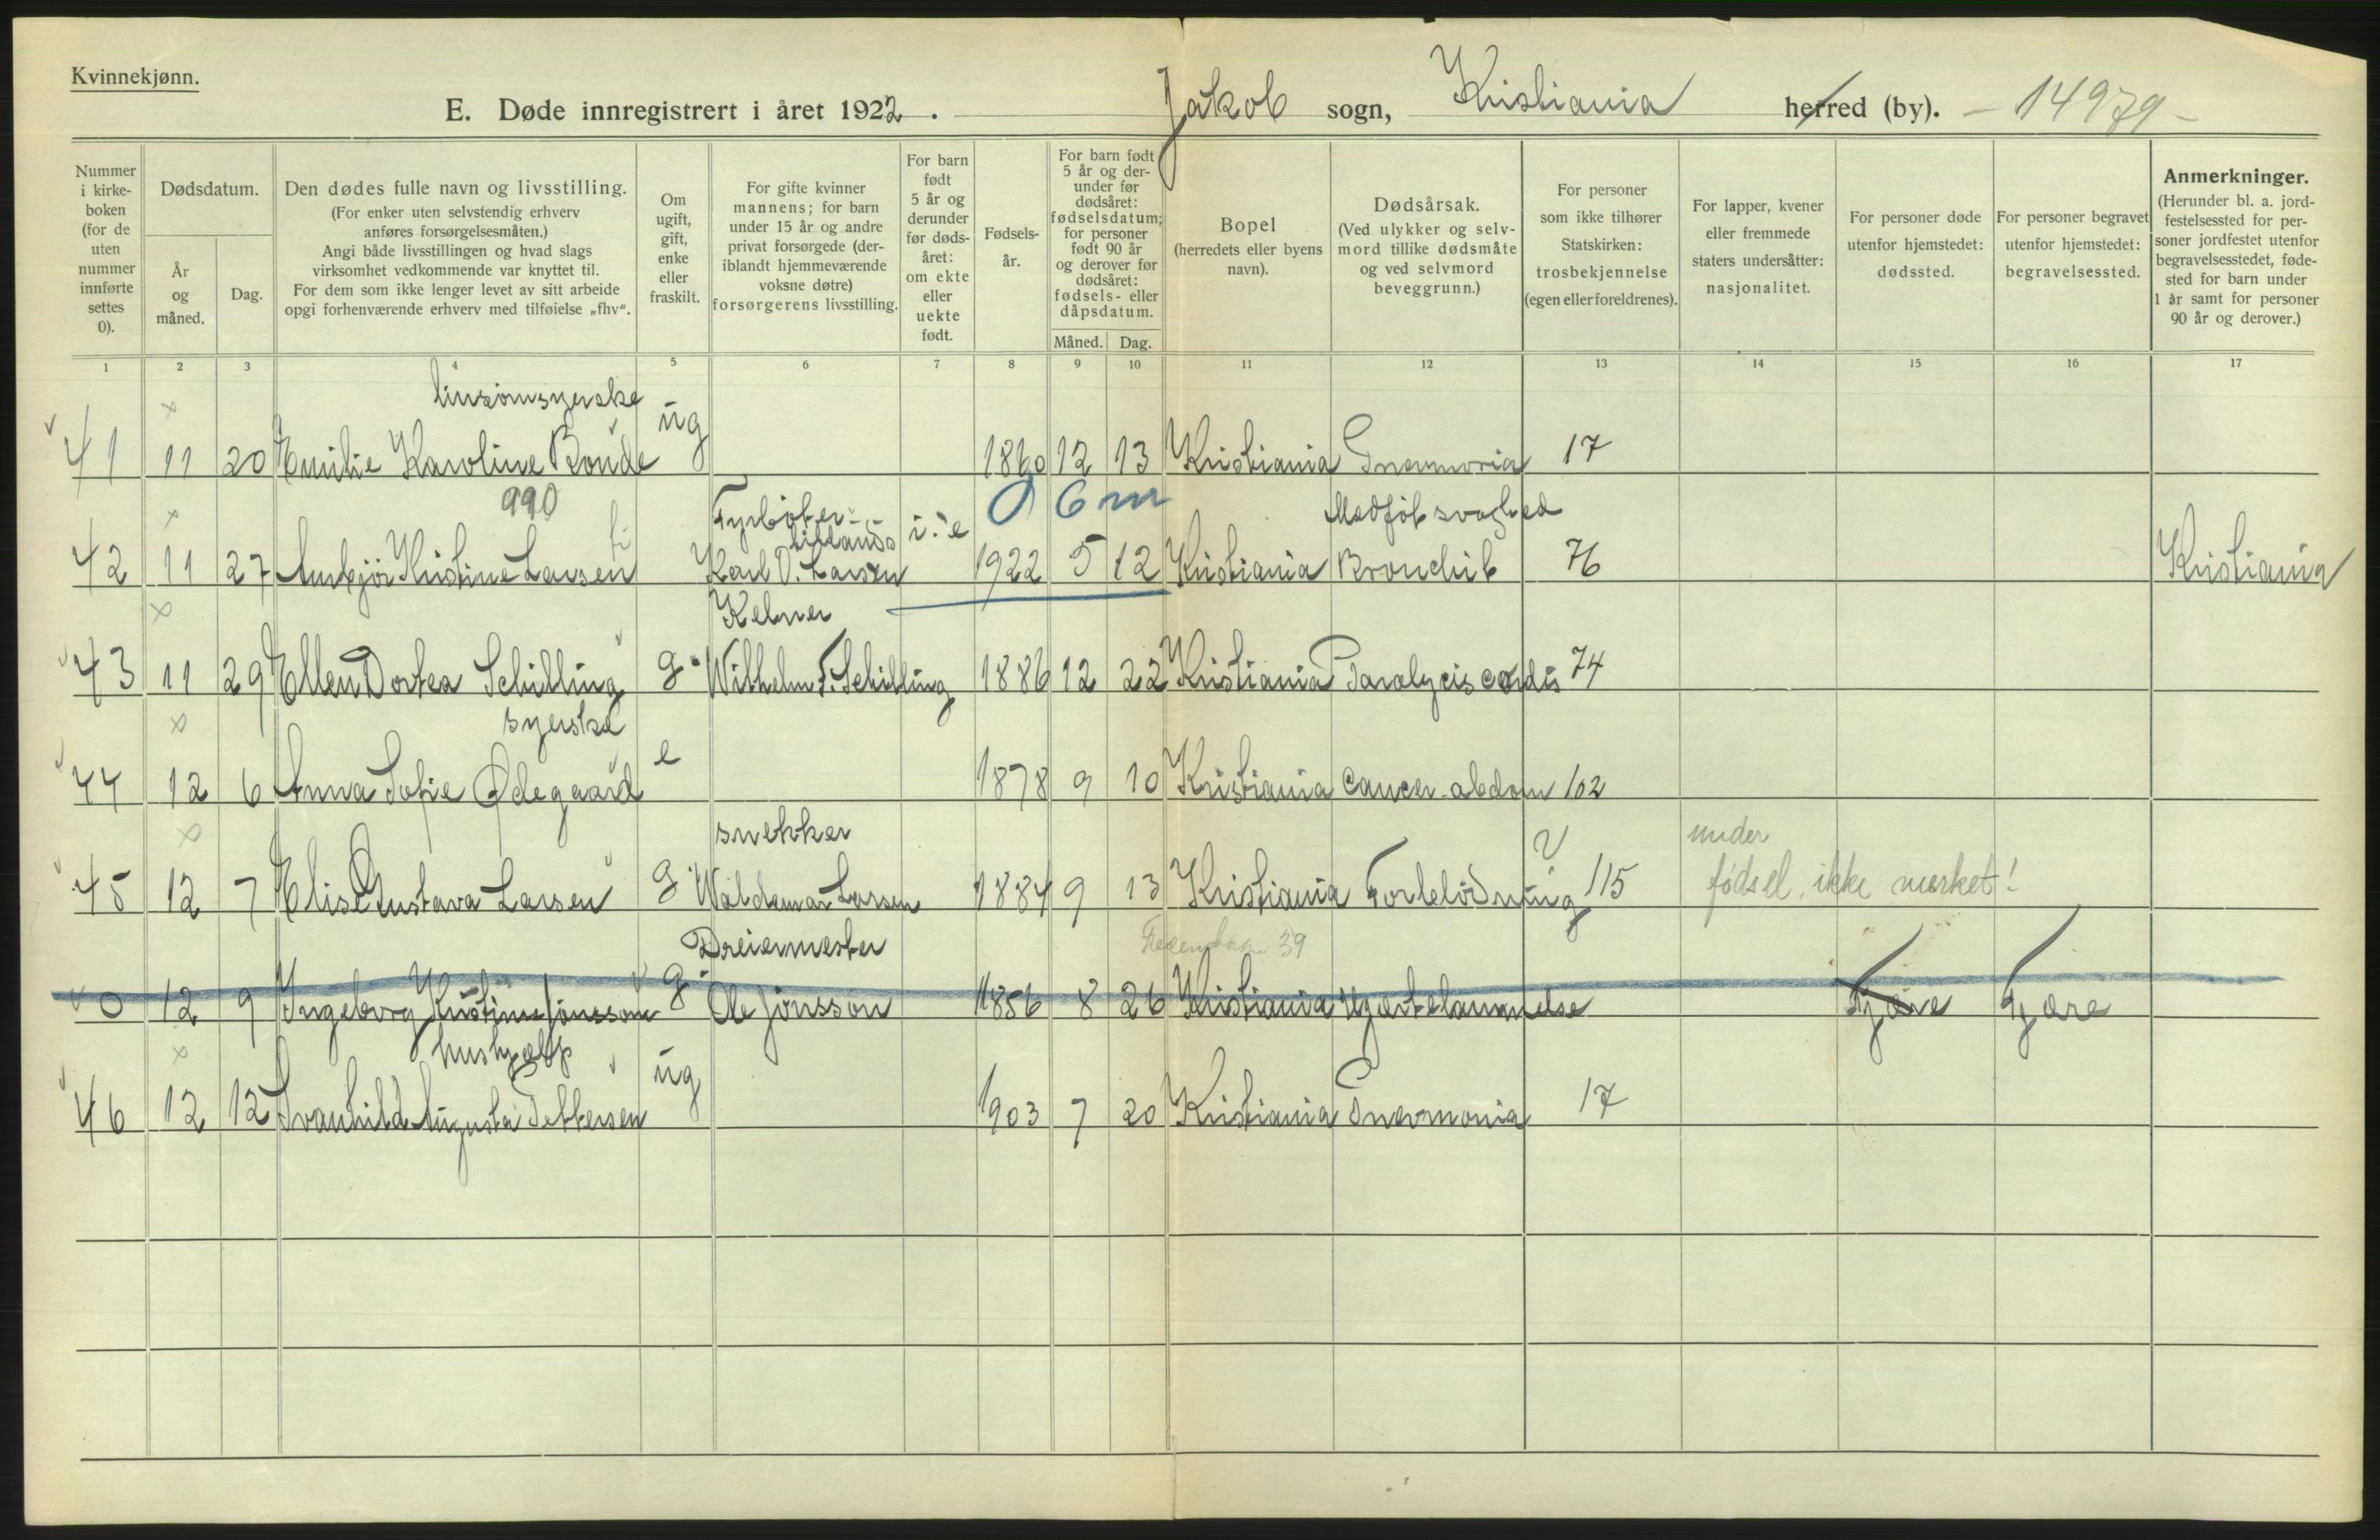 Kvinnekjønn.
E. Døde innregistrert i året 1922. Jakob sogn, Kristiania herred (by). - 14979 -
Nummer i kirkeboken (for de uten nummer innførte settes 0).
Dødsdatum.
År og måned.
Dag.
Den dødes fulle navn og livsstilling.
(For enker uten selvstendig erhverv anføres forsørgelsesmåten.)
Angi både livsstillingen og hvad slags virksomhet vedkommende var knyttet til.
For dem som ikke lenger levet av sitt arbeide opgi forhenværende erhverv med tilføielse „fhv“.
Om ugift, gift, enke eller fraskilt.
For gifte kvinner mannens; for barn under 15 år og andre privat forsørgede (deriblandt hjemmeværende voksne døtre) forsørgerens livsstilling.
For barn født 5 år og derunder før dødsåret: om ekte eller uekte født.
Fødselsår.
For barn født 5 år og derunder før dødsåret: fødselsdatum; for personer født 90 år og derover før dødsåret: fødsels- eller dåpsdatum.
Måned. Dag.
Bopel (herredets eller byens navn).
Dødsårsak. (Ved ulykker og selvmord tillike dødsmåte og ved selvmord beveggrunn.)
For personer som ikke tilhører Statskirken: trosbekjennelse (egen eller foreldrenes).
For lapper, kvener eller fremmede staters undersåtter: nasjonalitet.
For personer døde utenfor hjemstedet: dødssted.
For personer begravet utenfor hjemstedet: begravelsessted.
Anmerkninger. (Herunder bl. a. jordfestelsessted for personer jordfestet utenfor begravelsesstedet, fødested for barn under 1 år samt for personer 90 år og derover.)
1 2 3 4 5 6 7 8 9 10 11 12 13 14 15 16 17
linsømsyerske
41 11 20 Emilie Karoline Bonde ug 1860 12 13 Kristiania Pneumonia 17
990 Fyrbøter i. e 0 6 m Medføt svaghed
42 11 27 Annbjør Kristine Larsen Karl O. Larsen 1922 5 12 Kristiania Bronchit 76 Kristiania
Kelner
43 11 29 Ellen Dortea Schilling g. Wilhelm F. Schilling 1886 12 22 Kristiania Paralysis cordis 74
syerske
44 12 6 Anna Sofie Ødegaard e 1878 9 10 Kristiania Cancer abdom 102
snekker under
45 12 7 Elise Gustava Larsen g. Waldemar Larsen 1884 9 13 Kristiania Forblødning 115 fødsel, ikke merket!
Dreiermester 39
0 12 9 Ingeborg Kristine Jonsson g. Ole Jonsson 1856 8 26 Kristiania Hjertelammelse Tjøre Tjøre
hushjælp
46 12 12 Svanhild Augusta Pettersen ug 1903 7 20 Kristiania Pneumonia 17